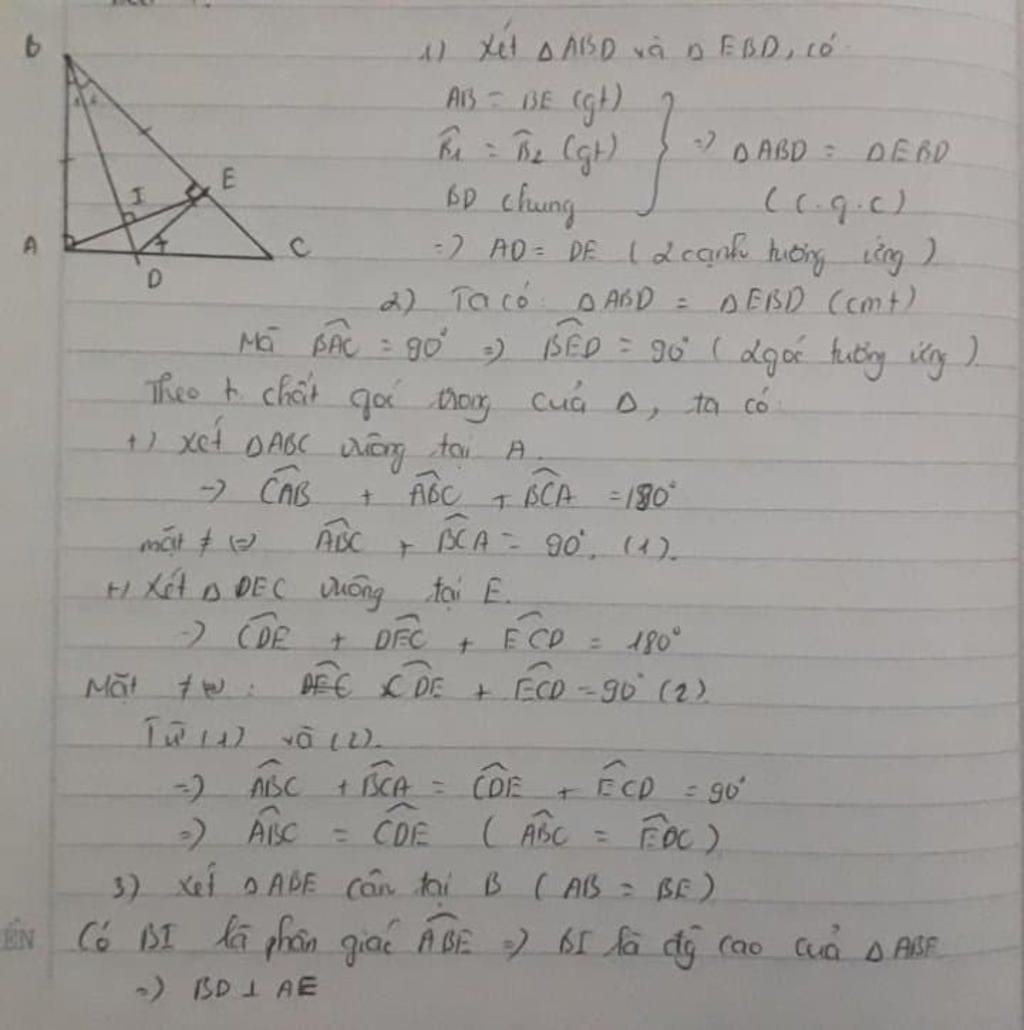 B
A
C
D
E
I
1) Xét △ABD và △EBD, có
AB = BE (gt)
B̂1 = B̂2 (gt) } => △ABD = △EBD
BD chung (c.g.c)
=> AD = DE (2 cạnh tương ứng)
2) Ta có: △ABD = △EBD (cmt)
Mà BAC^ = 90° => BED^ = 90° (2 góc tương ứng)
Theo t. chất góc trong của △, ta có
+) Xét △ABC vuông tại A.
=> CAB^ + ABC^ + BCA^ = 180°
mặt ≠ (=> ABC^ + BCA^ = 90°. (1).
+) Xét △DEC vuông tại E.
=> CDE^ + DEC^ + ECD^ = 180°
Mặt ≠ : CDE^ + ECD^ = 90° (2)
Từ (1) và (2).
=> ABC^ + BCA^ = CDE^ + ECD^ = 90°
=> ABC^ = CDE^ (ABC^ = EDC^)
3) Xét △ABE cân tại B (AB = BE)
Có BI là phân giác ABE^ => BI là đg cao của △ABE
=> BD ⊥ AE